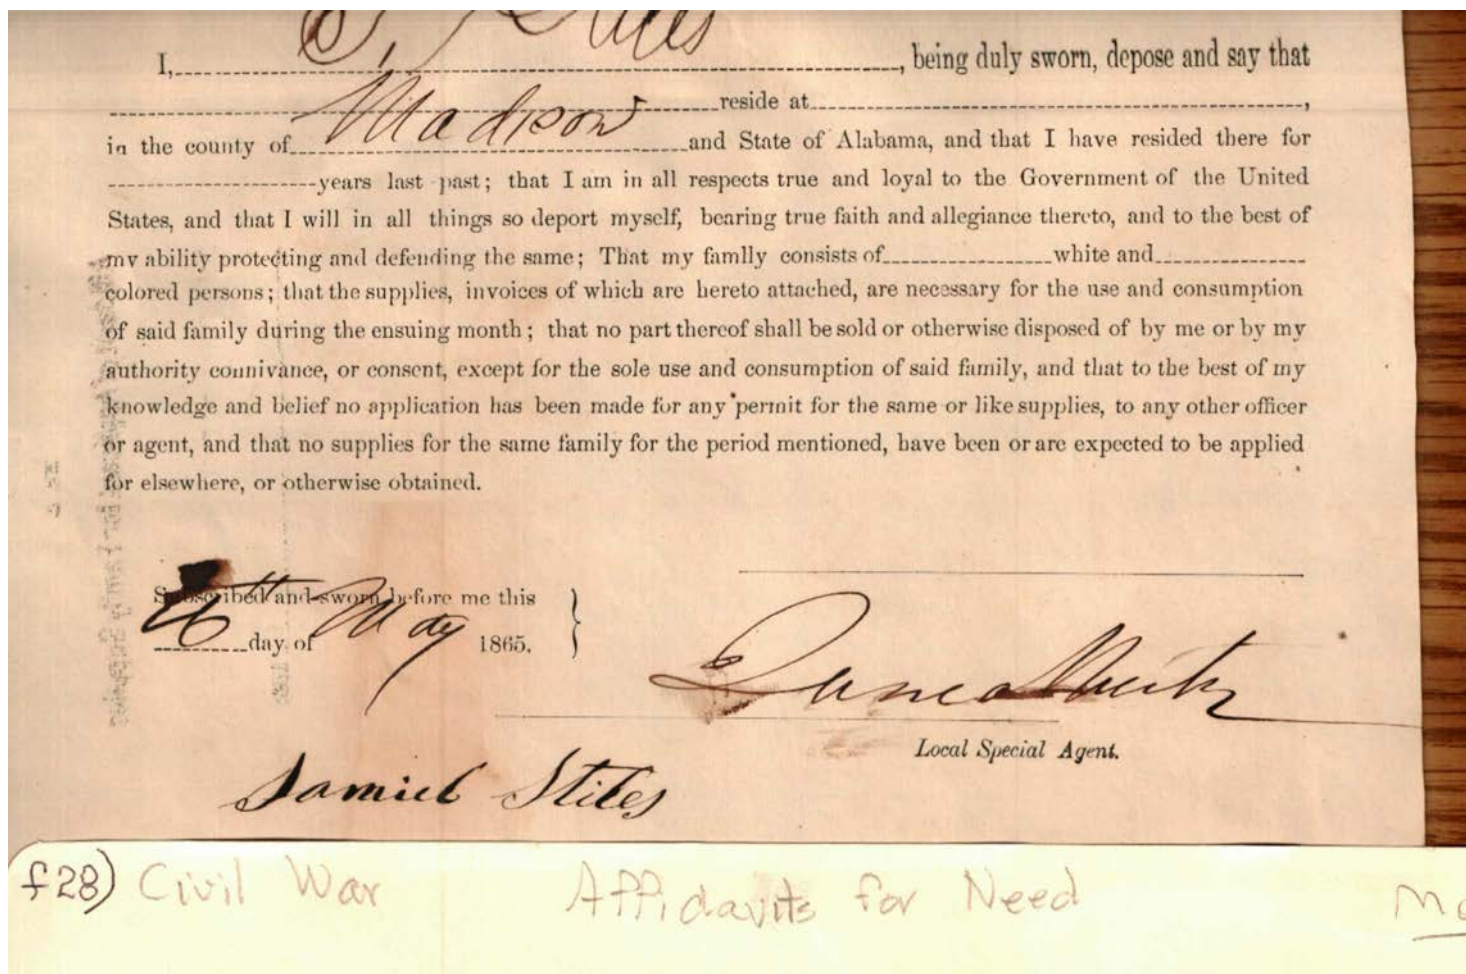 I, S. Stiles, being duly sworn, depose and say that
reside at ,
in the county of Madison and State of Alabama, and that I have resided there for
years last past; that I am in all respects true and loyal to the Government of the United
States, and that I will in all things so deport myself, bearing true faith and allegiance thereto, and to the best of
my ability protecting and defending the same; That my famlly consists of white and
colored persons; that the supplies, invoices of which are hereto attached, are necessary for the use and consumption
of said family during the ensuing month; that no part thereof shall be sold or otherwise disposed of by me or by my
authority connivance, or consent, except for the sole use and consumption of said family, and that to the best of my
knowledge and belief no application has been made for any permit for the same or like supplies, to any other officer
or agent, and that no supplies for the same family for the period mentioned, have been or are expected to be applied
for elsewhere, or otherwise obtained.
Subscribed and sworn before me this
6th day of May 1865.
Local Special Agent.
Samiel Stiles
f28) Civil War Affidavits for Need